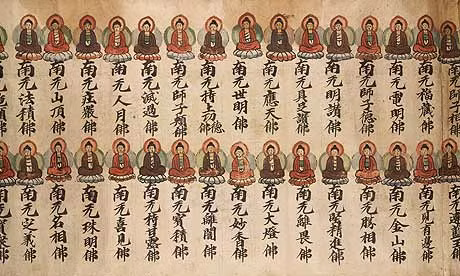 南无師子相佛
南无福藏佛
南无電明佛
南无師子德佛
南无明讃佛
南无具足讃佛
南无應天佛
南无世明佛
南无持上功德佛
南无師子頰佛
南无滅過佛
南无人月佛
南无莊嚴佛
南无山頂佛
南无法積佛
南无見有邊佛
南无金山佛
南无勝相佛
南无堅精進佛
南无離畏佛
南无大燈佛
南无妙香佛
南无離闇佛
南无寶積佛
南无持甘露佛
南无喜見佛
南无珠明佛
南无名相佛
南无定義佛